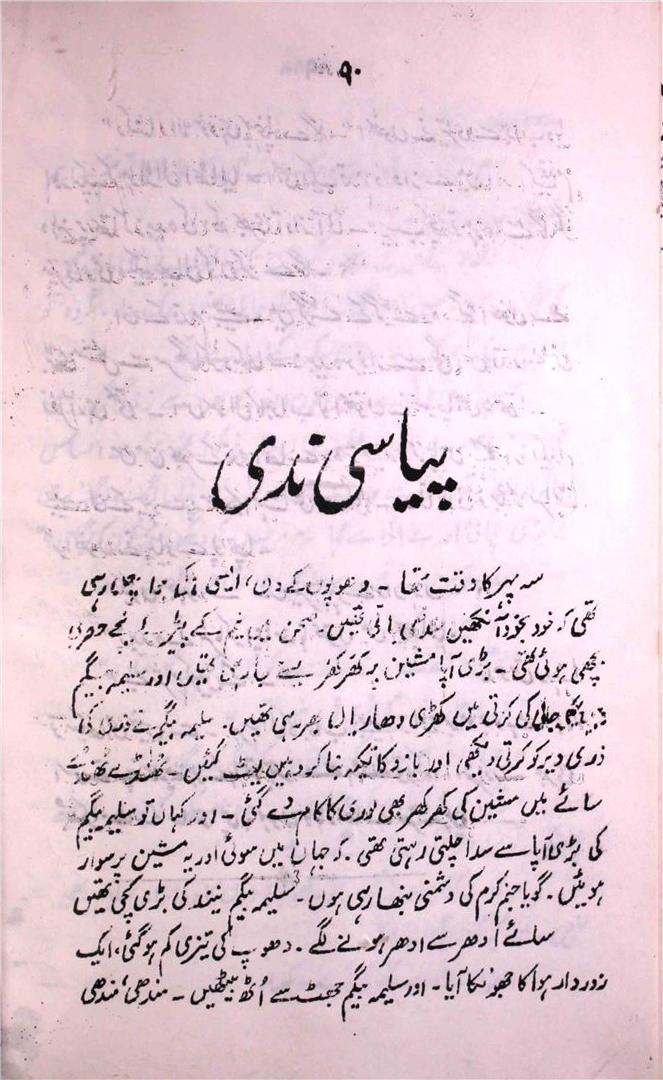 ۹۰
پیاسی ندی
سہ پہر کا وقت تھا ۔ دھوپوں کے دن، ایسی ہوا چل رہی
تھی کہ خود بخود آنکھیں جاتی تھیں ۔ صحن میں نیم کے پیڑ کے نیچے دری
بچھی ہوئی تھی ۔ بڑی آپا مشین پر کھر کھر سیئے جا رہی تھیں اور سلیمہ بیگم
جالی کی کرتی میں کھڑی دھاریاں بھر رہی تھیں ۔ سلیمہ بیگم نے ذری کی
ذری دیر کو کرتی دیکھی اور بازو کا تکیہ بنا کر وہیں لیٹ گئیں ۔ ٹھنڈے ٹھنڈے
سائے میں مشین کی کھر کھر بھی لوری کا کام دے گئی ۔ اور کہاں تو سلیمہ بیگم
کی بڑی آپا سے سدا چلتی رہتی تھی ۔ کہ جہاں میں سوئی اور یہ مشین پر سوار
ہوئیں ۔ گویا جنم کرم کی دشمنی نبھا رہی ہوں ۔ سلیمہ بیگم نیند کی بڑی کچی تھیں
سائے اُدھر سے ادھر ہونے لگے ۔ دھوپ کی تیزی کم ہو گئی، ایک
زوردار ہوا کا جھونکا آیا ۔ اور سلیمہ بیگم جھٹ سے اُٹھ بیٹھیں ۔ مندھی مندھی